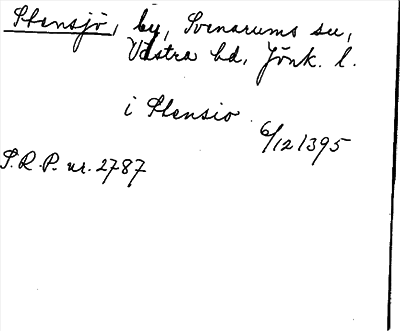 Stensjö, by, Svenarums sn,
Västra hd, Jönk. l.
i Stensio
6/12 1395
S.R.P. nr. 2787